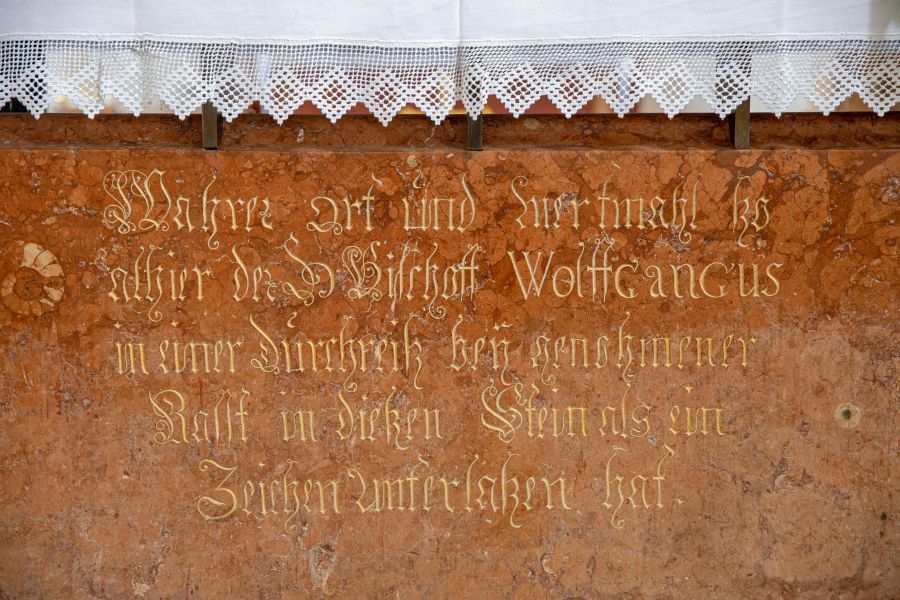 Wahrer ort und Merkmahl so
alhier der H Bischoff Wolffgangus
in einer durchreiß beÿ genohmener
Rasst in dießen Stein als ein
Zeichen unterlaßen hat.